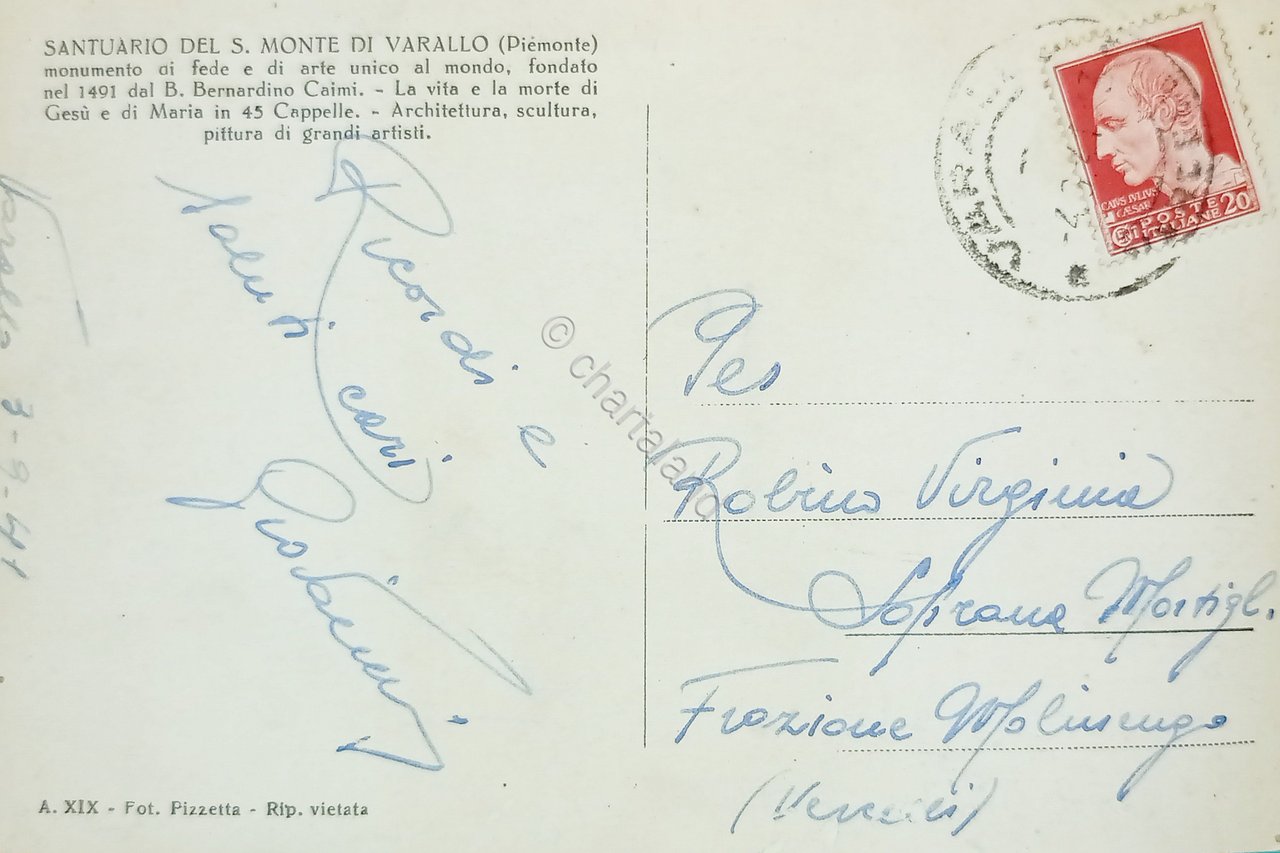 SANTUARIO DEL S. MONTE DI VARALLO (Piemonte)
monumento di fede e di arte unico al mondo, fondato
nel 1491 dal B. Bernardino Caimi. - La vita e la morte di
Gesù e di Maria in 45 Cappelle. - Architettura, scultura,
pittura di grandi artisti.
Ricordi e
saluti cari
Giovanni
Varallo 3-9-41
A. XIX - Fot. Pizzetta - Rip. vietata
CAIVS IVLIVS
CÆSAR
POSTE
ITALIANE
CENT
20
© chartaland
Robino Virginia
Soprana Mortigl.
Frazione Molinengo
(Vercelli)